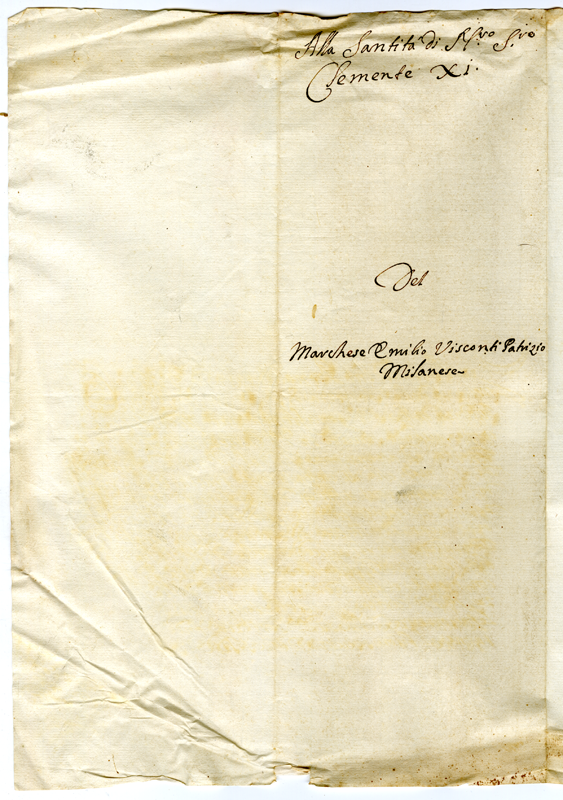 Alla Santità di N.ro S.re
Clemente XI.
Del
Marchese Emilio Visconti Patrizio
Milanese